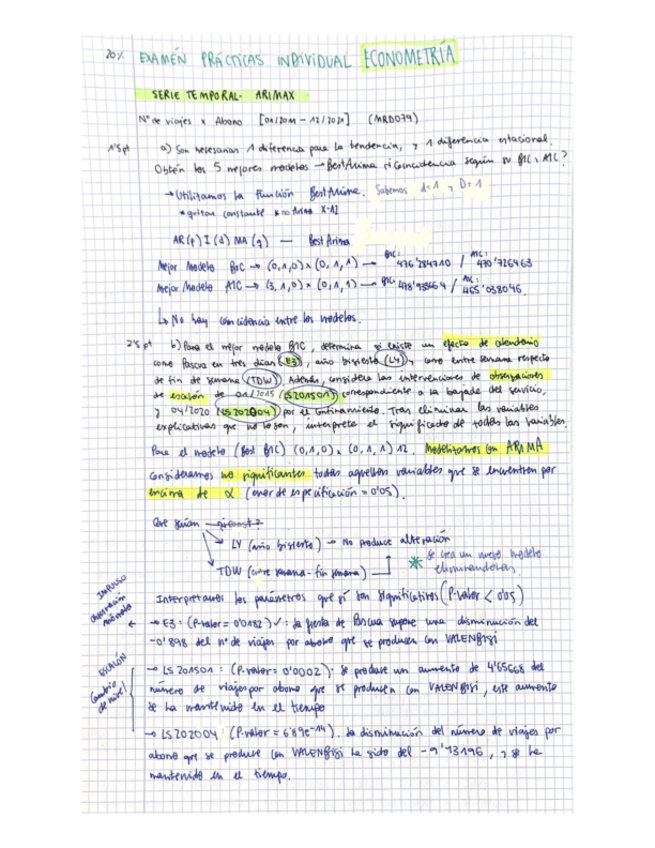 20%
EXAMÉN PRÁCTICAS INDIVIDUAL ECONOMETRÍA
SERIE TEMPORAL - ARIMAX
Nº de viajes x Abono [01/2011 - 12/2021] (MRD079)
1'5 pt a) Son necesarias 1 diferencia para la tendencia, y 1 diferencia estacional.
Obtén los 5 mejores modelos → BestArima ¿Coincidencia según su BIC, AIC?
→ Utilizamos la función BestArima. Sabemos d=1 y D=1
* quitar constante * no Arima X-12
AR(p) I(d) MA(q) — Best Arima
Mejor Modelo BIC → (0,1,0) x (0,1,1) → BIC: 476'284710 / AIC: 470'726463
Mejor Modelo AIC → (3,1,0) x (0,1,1) → BIC: 478'935664 / AIC: 465'038046.
↳ No hay coincidencia entre los modelos.
2'5 pt b) Para el mejor modelo BIC, determina si existe un efecto de calendario
como Pascua en tres días (E3), año bisiesto (LY), como entre semana respecto
de fin de semana (TDW). Además, considera las intervenciones de observaciones
de escalón de 01/2015 (LS201501) correspondiente a la bajada del servicio,
y 04/2020 (LS202004) por el confinamiento. Tras eliminar las variables
explicativas que no lo son, interprete el significado de todas las variables.
Para el modelo (Best BIC) (0,1,0) x (0,1,1) 12. Modelizamos con ARIMA
Consideramos no significantes todas aquellas variables que se encuentren por
encima de α (error de especificación = 0'05).
Que serían
LY (año bisiesto) → No produce alteración
TDW (entre semana - fin semana)
* Se crea un nuevo modelo
eliminandolas.
Interpretamos los parámetros que sí son significativos (P-valor < 0'05)
IMPULSO
observación
anómala
→ E3: (P-valor = 0'0182) ✓: la fiesta de Pascua supone una disminución del
-0'898 del nº de viajes por abono que se producen con VALENBISI
ESCALÓN
Cambio
de nivel
→ LS 201501: (P-valor = 0'0002): se produce un aumento de 4'65668 del
número de viajes por abono que se producen con VALENBISI, este aumento
se ha mantenido en el tiempo
→ LS202004: (P-valor = 6'89e⁻¹⁴). La disminución del número de viajes por
abono que se produce con VALENBISI ha sido del -9'13196, y se ha
mantenido en el tiempo.